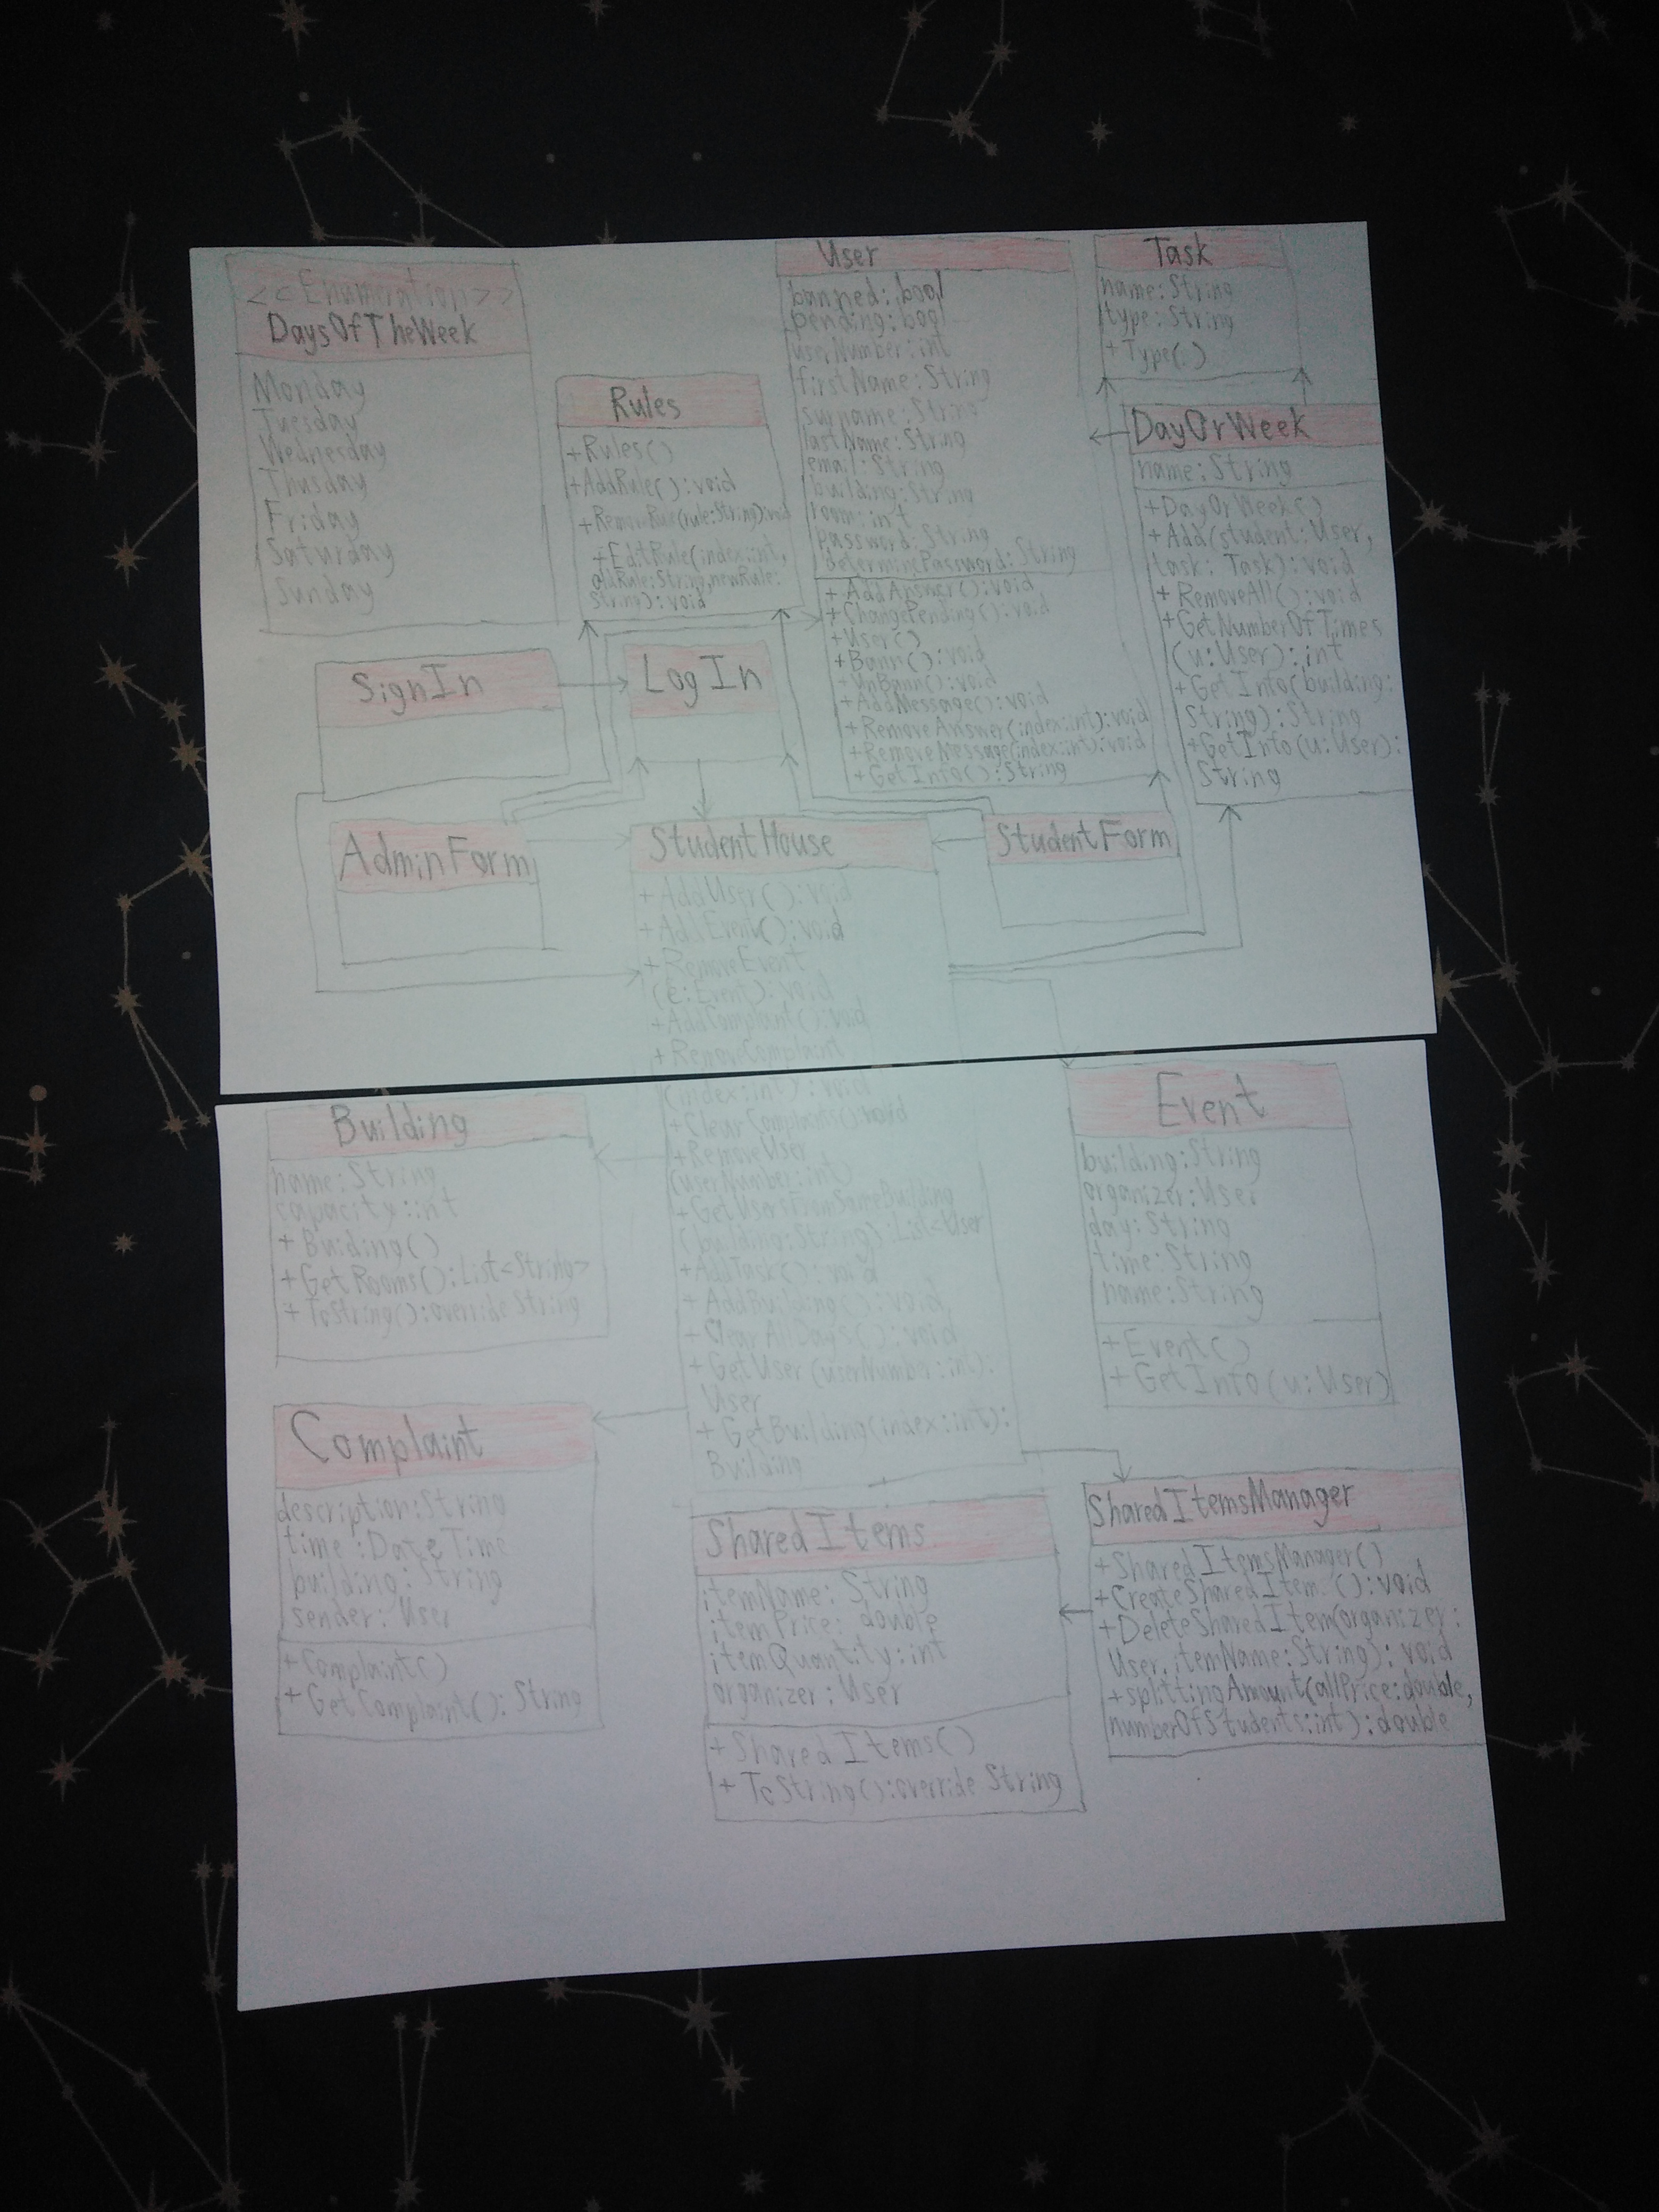 <<Enumeration>>
DaysOfTheWeek
Monday
Tuesday
Wednesday
Thusday
Friday
Saturday
Sunday
Rules
+Rules()
+AddRule():void
+RemoveRule(rule:String):void
+EditRule(index:int,
oldRule:String,newRule:
String):void
User
banned:bool
pending:bool
userNumber:int
firstName:String
surname:String
lastName:String
email:String
building:String
room:int
password:String
determinePassword:String
+AddAnswer():void
+ChangePending():void
+User()
+Bann():void
+UnBann():void
+AddMessage():void
+RemoveAnswer(index:int):void
+RemoveMessage(index:int):void
+GetInfo():String
Task
name:String
type:String
+Type()
DayOrWeek
name:String
+DayOrWeek()
+Add(student:User,
task:Task):void
+RemoveAll():void
+GetNumberOfTimes
(u:User):int
+GetInfo(building:
String):String
+GetInfo(u:User):
String
SignIn
LogIn
AdminForm
StudentHouse
+AddUser():void
+AddEvent():void
+RemoveEvent
(e:Event):void
+AddComplaint():void
+RemoveComplaint
(index:int):void
+ClearComplaints():void
+RemoveUser
(userNumber:int)
+GetUsersFromSameBuilding
(building:String):List<User
+AddTask():void
+AddBuilding():void
+ClearAllDays():void
+GetUser(userNumber:int):
User
+GetBuilding(index:int):
Building
StudentForm
Building
name:String
capacity:int
+Building()
+GetRooms():List<String>
+ToString():override String
Event
building:String
organizer:User
day:String
time:String
name:String
+Event()
+GetInfo(u:User)
Complaint
description:String
time:DateTime
building:String
sender:User
+Complaint()
+GetComplaint():String
SharedItems
itemName:String
itemPrice:double
itemQuantity:int
organizer:User
+SharedItems()
+ToString():override String
SharedItemsManager
+SharedItemsManager()
+CreateSharedItem():void
+DeleteSharedItem(organizer:
User,itemName:String):void
+splittingAmount(allPrice:double,
numberOfStudents:int):double